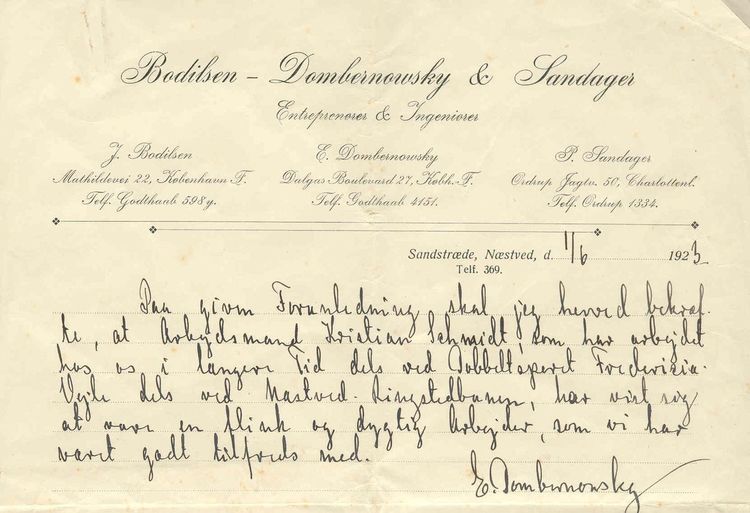 Bodilsen – Dombernowsky & Sandager
Entreprenører & Ingeniører
J. Bodilsen
Mathildevei 22, København F.
Telf. Godthaab 598 y.
E. Dombernowsky
Dalgas Boulevard 27, Købh. F.
Telf. Godthaab 4151.
P. Sandager
Ordrup Jagtv. 50, Charlottenl.
Telf. Ordrup 1334.
Sandstræde, Næstved, d. 1/6 1923
Telf. 369.
Paa given Foranledning skal jeg herved bekræf-
te, at Arbejdsmand Kristian Schmidt, som har arbejdet
hos os i længere Tid dels ved Dobbeltsporet Fredericia-
Vejle dels ved Næstved-Ringstedbanen, har vist sig
at være en flink og dygtig Arbejder, som vi har
været godt tilfreds med.
E. Dombernowsky